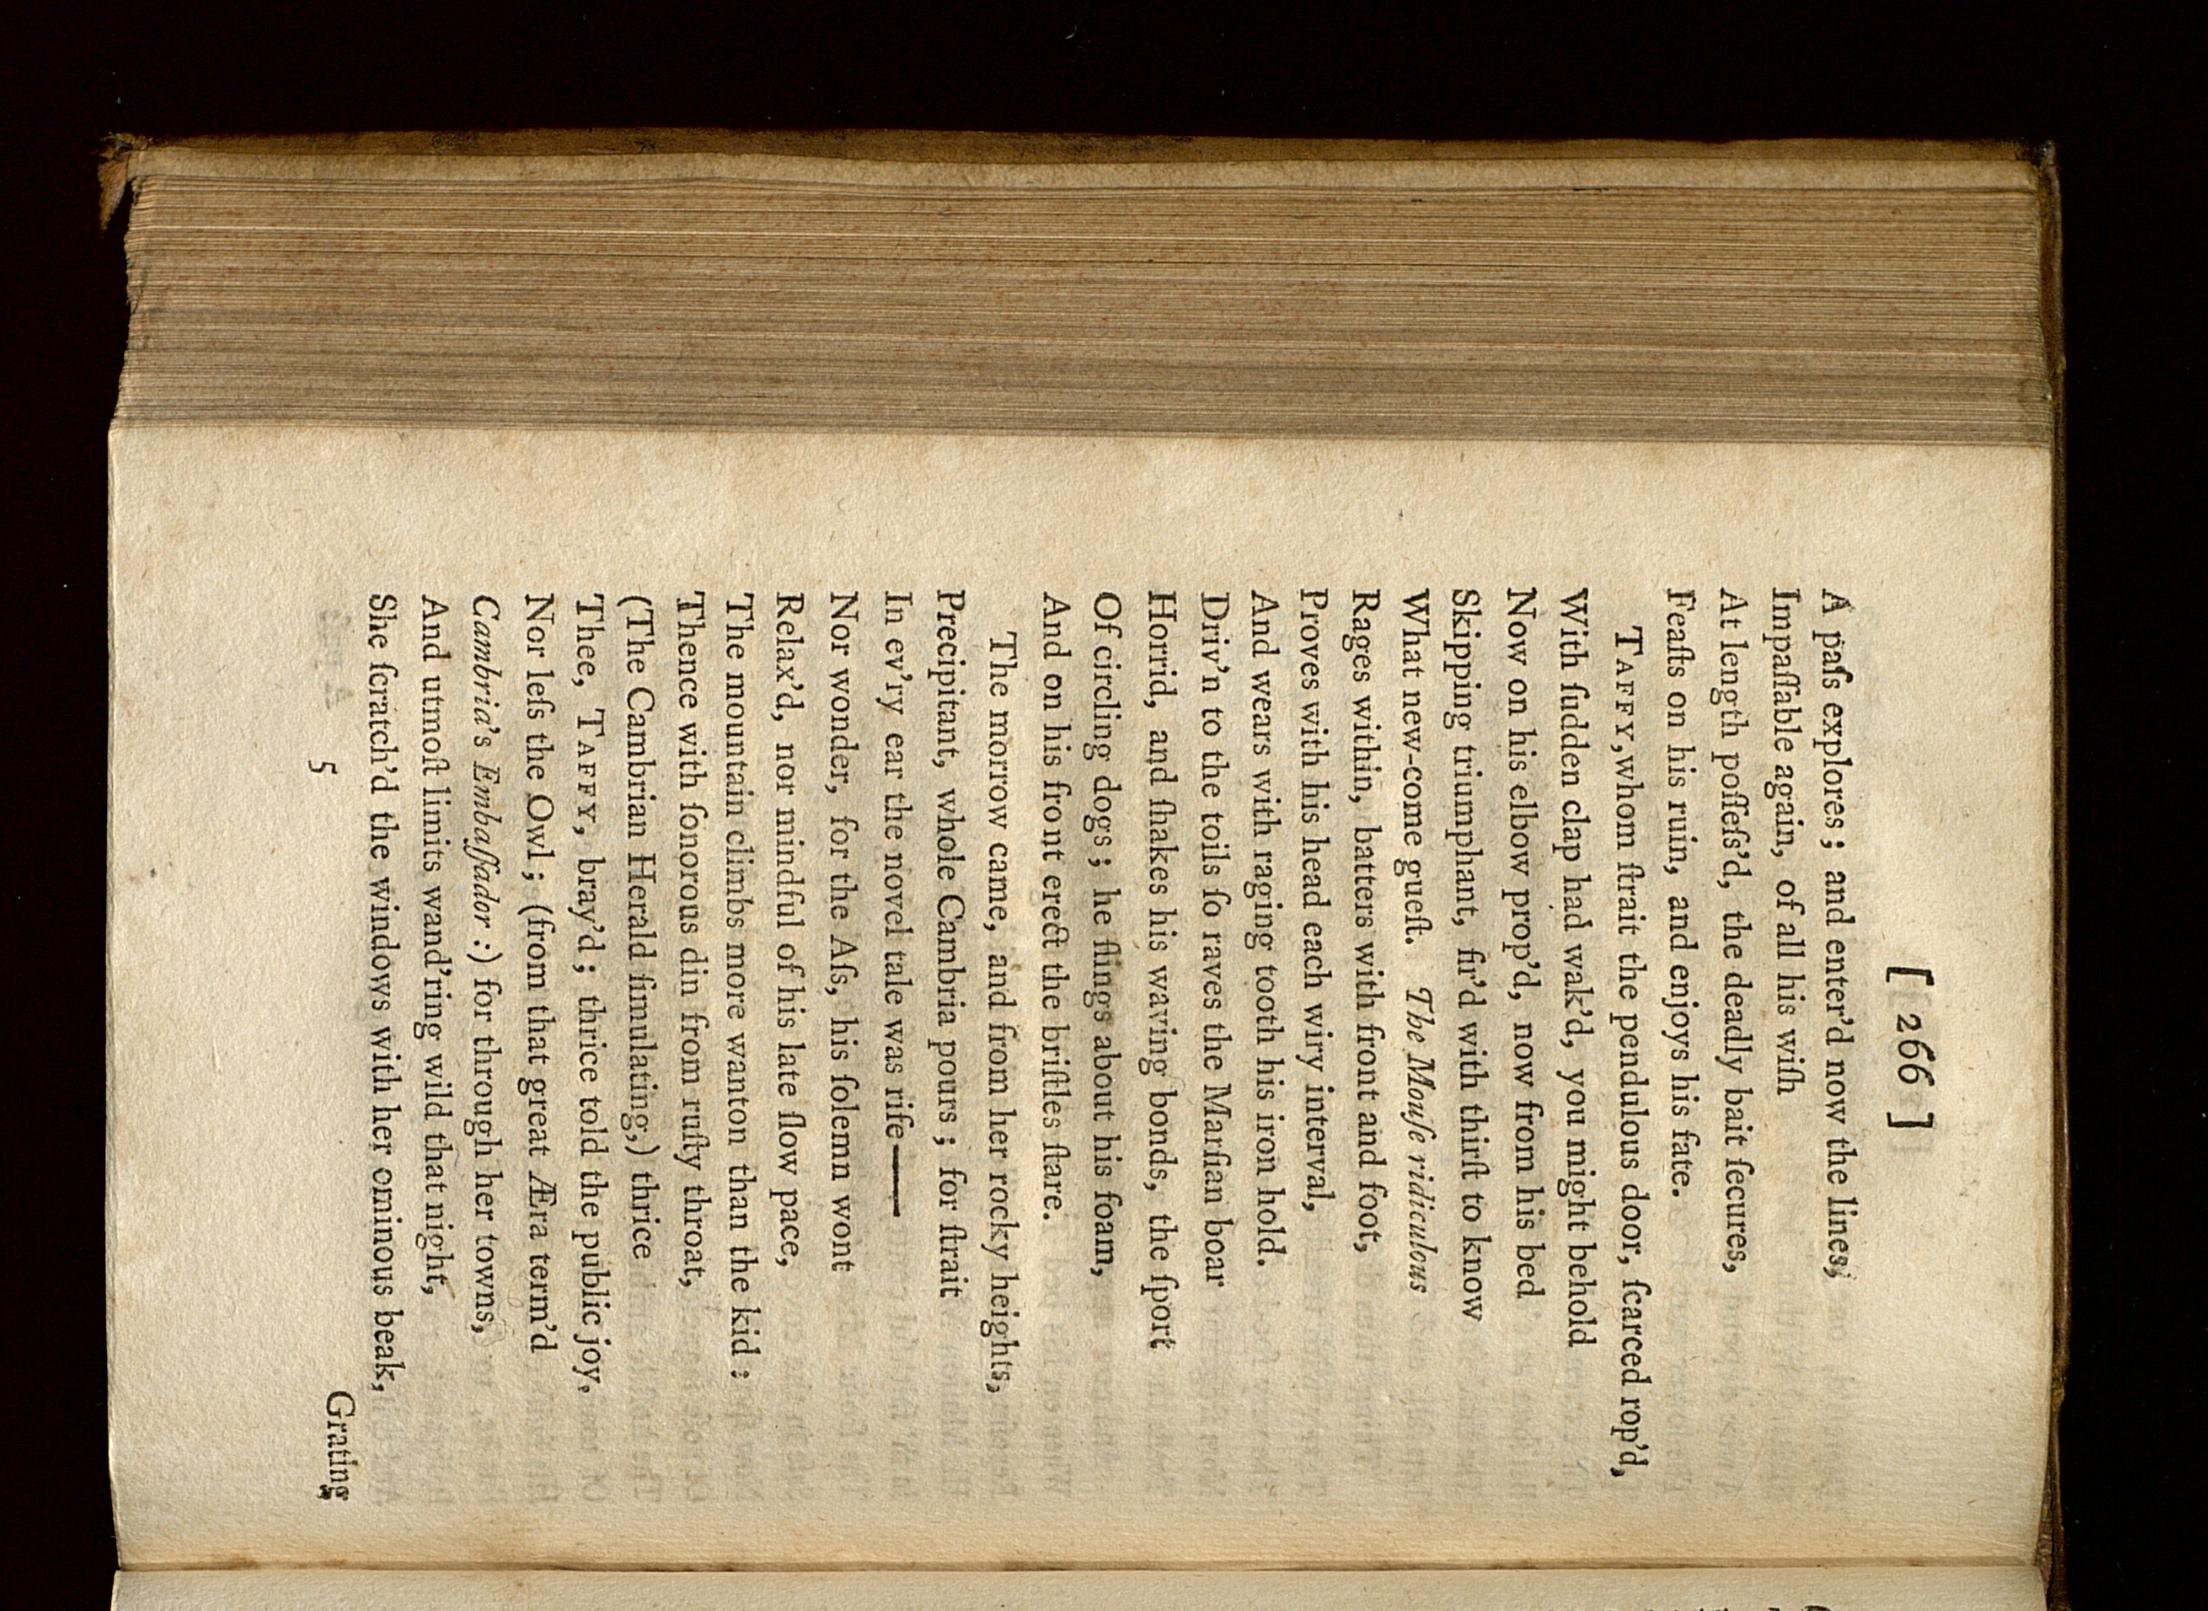 [ 266 ]
A paſs explores ; and enter'd now the lines,
Impaſſable again, of all his wiſh
At length poſſeſs'd, the deadly bait ſecures,
Feaſts on his ruin, and enjoys his fate.
TAFFY, whom ſtrait the pendulous door, ſcarced rop'd,
With ſudden clap had wak'd, you might behold
Now on his elbow prop'd, now from his bed
Skipping triumphant, fir'd with thirſt to know
What new-come gueſt. The Mouſe ridiculous
Rages within, batters with front and foot,
Proves with his head each wiry interval,
And wears with raging tooth his iron hold.
Driv'n to the toils ſo raves the Marſian boar
Horrid, and ſhakes his waving bonds, the ſport
Of circling dogs ; he flings about his foam,
And on his front erect the briſtles ſtare.
The morrow came, and from her rocky heights,
Precipitant, whole Cambria pours ; for ſtrait
In ev'ry ear the novel tale was rife——
Nor wonder, for the Aſs, his ſolemn wont
Relax'd, nor mindful of his late ſlow pace,
The mountain climbs more wanton than the kid :
Thence with ſonorous din from ruſty throat,
(The Cambrian Herald ſimulating,) thrice
Thee, TAFFY, bray'd ; thrice told the public joy.
Nor leſs the Owl ; (from that great Æra term'd
Cambria's Embaſſador :) for through her towns,
And utmoſt limits wand'ring wild that night,
She ſcratch'd the windows with her ominous beak,
5
Grating